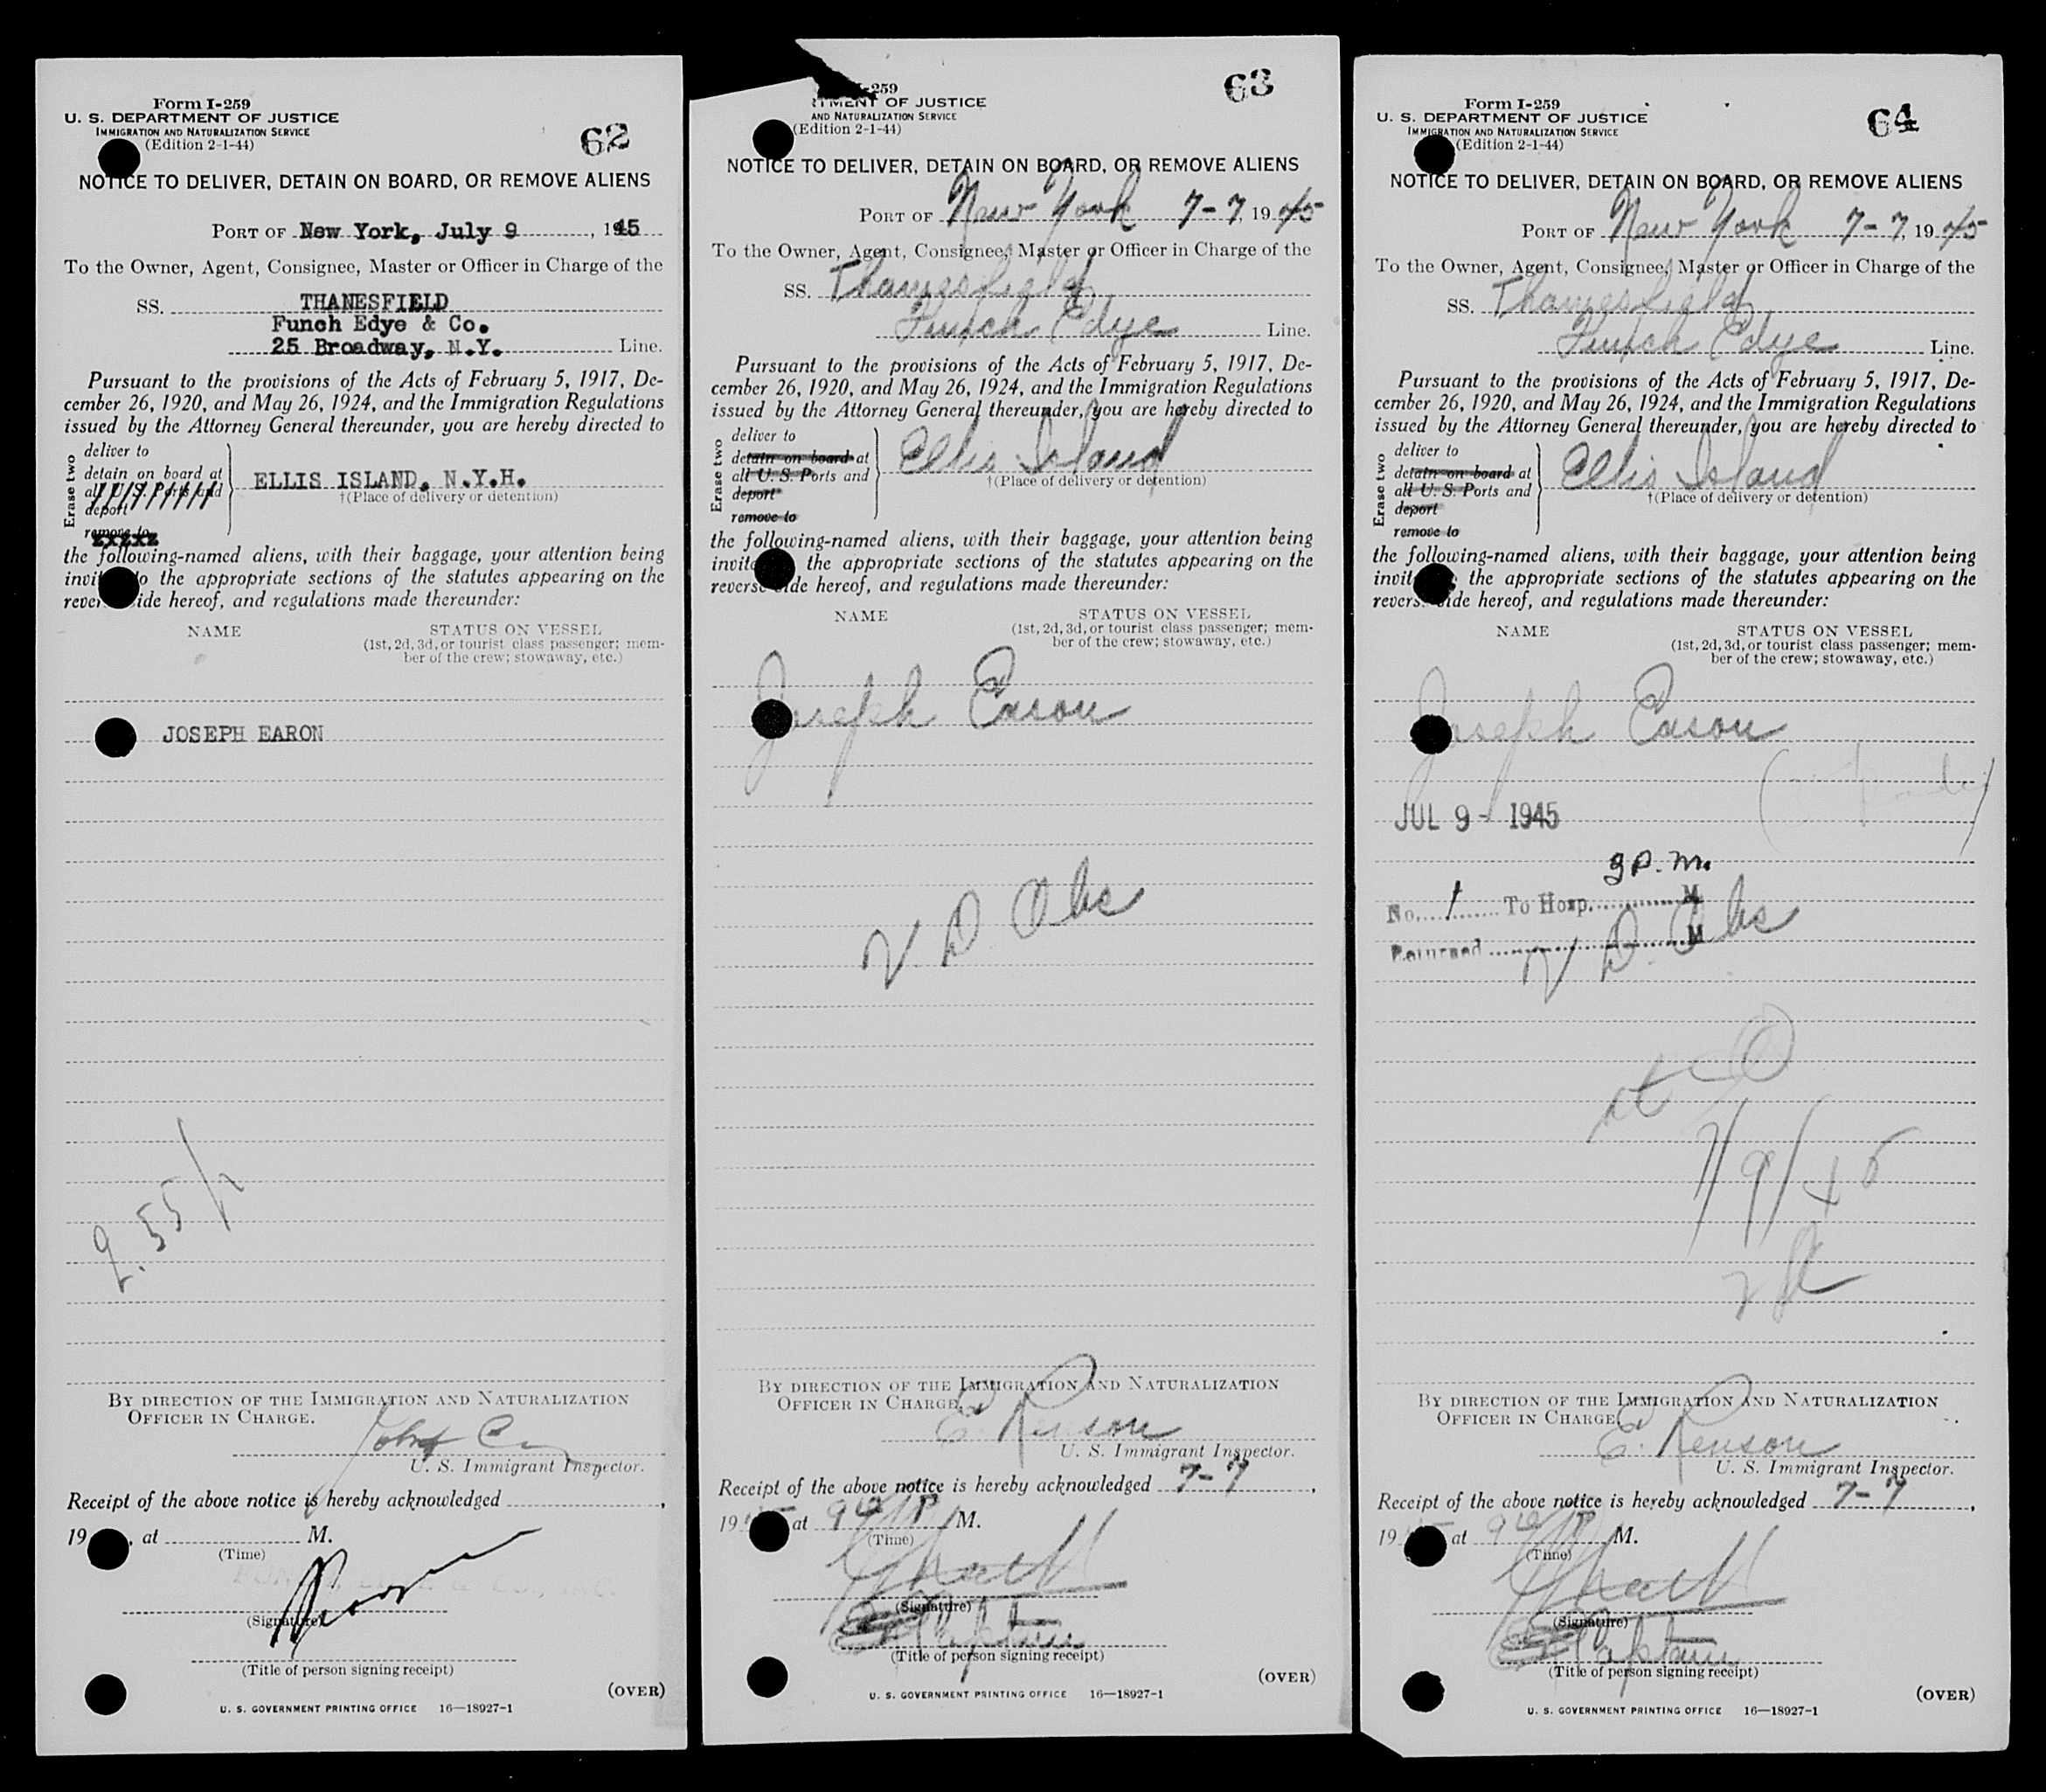 Form I-259
U. S. DEPARTMENT OF JUSTICE
IMMIGRATION AND NATURALIZATION SERVICE
(Edition 2-1-44)
62
NOTICE TO DELIVER, DETAIN ON BOARD, OR REMOVE ALIENS
PORT OF New York, July 9, 1945
To the Owner, Agent, Consignee, Master or Officer in Charge of the
SS. THANESFIELD
Funch Edye & Co.
25 Broadway, N.Y. Line.
Pursuant to the provisions of the Acts of February 5, 1917, De-
cember 26, 1920, and May 26, 1924, and the Immigration Regulations
issued by the Attorney General thereunder, you are hereby directed to
Erase two
deliver to
detain on board at
all U. S. Ports and
deport
remove to
ELLIS ISLAND, N.Y.H.
†(Place of delivery or detention)
the following-named aliens, with their baggage, your attention being
invit o the appropriate sections of the statutes appearing on the
rever ide hereof, and regulations made thereunder:
NAME STATUS ON VESSEL
(1st, 2d, 3d, or tourist class passenger; mem-
ber of the crew; stowaway, etc.)
JOSEPH EARON
2.55/
BY DIRECTION OF THE IMMIGRATION AND NATURALIZATION
OFFICER IN CHARGE.
John
U. S. Immigrant Inspector.
Receipt of the above notice is hereby acknowledged ,
19 , at M.
(Time)
(Signature)
(Title of person signing receipt)
(OVER)
U. S. GOVERNMENT PRINTING OFFICE 16—18927-1
-259
TMENT OF JUSTICE
AND NATURALIZATION SERVICE
(Edition 2-1-44)
63
NOTICE TO DELIVER, DETAIN ON BOARD, OR REMOVE ALIENS
PORT OF New York 7-7, 1945
To the Owner, Agent, Consignee, Master or Officer in Charge of the
SS. Thanesfield
Funch Edye Line.
Pursuant to the provisions of the Acts of February 5, 1917, De-
cember 26, 1920, and May 26, 1924, and the Immigration Regulations
issued by the Attorney General thereunder, you are hereby directed to
Erase two
deliver to
detain on board at
all U. S. Ports and
deport
remove to
Ellis Island
†(Place of delivery or detention)
the following-named aliens, with their baggage, your attention being
invite the appropriate sections of the statutes appearing on the
reverse ide hereof, and regulations made thereunder:
NAME STATUS ON VESSEL
(1st, 2d, 3d, or tourist class passenger; mem-
ber of the crew; stowaway, etc.)
Joseph Eason
V D Obs
BY DIRECTION OF THE IMMIGRATION AND NATURALIZATION
OFFICER IN CHARGE.
E. Renson
U. S. Immigrant Inspector.
Receipt of the above notice is hereby acknowledged 7-7,
19 at P M.
(Time)
(Signature)
Captain
(Title of person signing receipt)
(OVER)
U. S. GOVERNMENT PRINTING OFFICE 16—18927-1
Form I-259
U. S. DEPARTMENT OF JUSTICE
IMMIGRATION AND NATURALIZATION SERVICE
(Edition 2-1-44)
64
NOTICE TO DELIVER, DETAIN ON BOARD, OR REMOVE ALIENS
PORT OF New York 7-7, 1945
To the Owner, Agent, Consignee, Master or Officer in Charge of the
SS. Thanesfield
Funch Edye Line.
Pursuant to the provisions of the Acts of February 5, 1917, De-
cember 26, 1920, and May 26, 1924, and the Immigration Regulations
issued by the Attorney General thereunder, you are hereby directed to
Erase two
deliver to
detain on board at
all U. S. Ports and
deport
remove to
Ellis Island
†(Place of delivery or detention)
the following-named aliens, with their baggage, your attention being
invit the appropriate sections of the statutes appearing on the
revers ide hereof, and regulations made thereunder:
NAME STATUS ON VESSEL
(1st, 2d, 3d, or tourist class passenger; mem-
ber of the crew; stowaway, etc.)
Joseph Eason
JUL 9 - 1945
3 P. M.
No. 1 To Hosp. M
Returned M
V D Obs
7/9/45
BY DIRECTION OF THE IMMIGRATION AND NATURALIZATION
OFFICER IN CHARGE.
E. Renson
U. S. Immigrant Inspector.
Receipt of the above notice is hereby acknowledged 7-7,
19 at P M.
(Time)
(Signature)
Captain
(Title of person signing receipt)
(OVER)
U. S. GOVERNMENT PRINTING OFFICE 16—18927-1